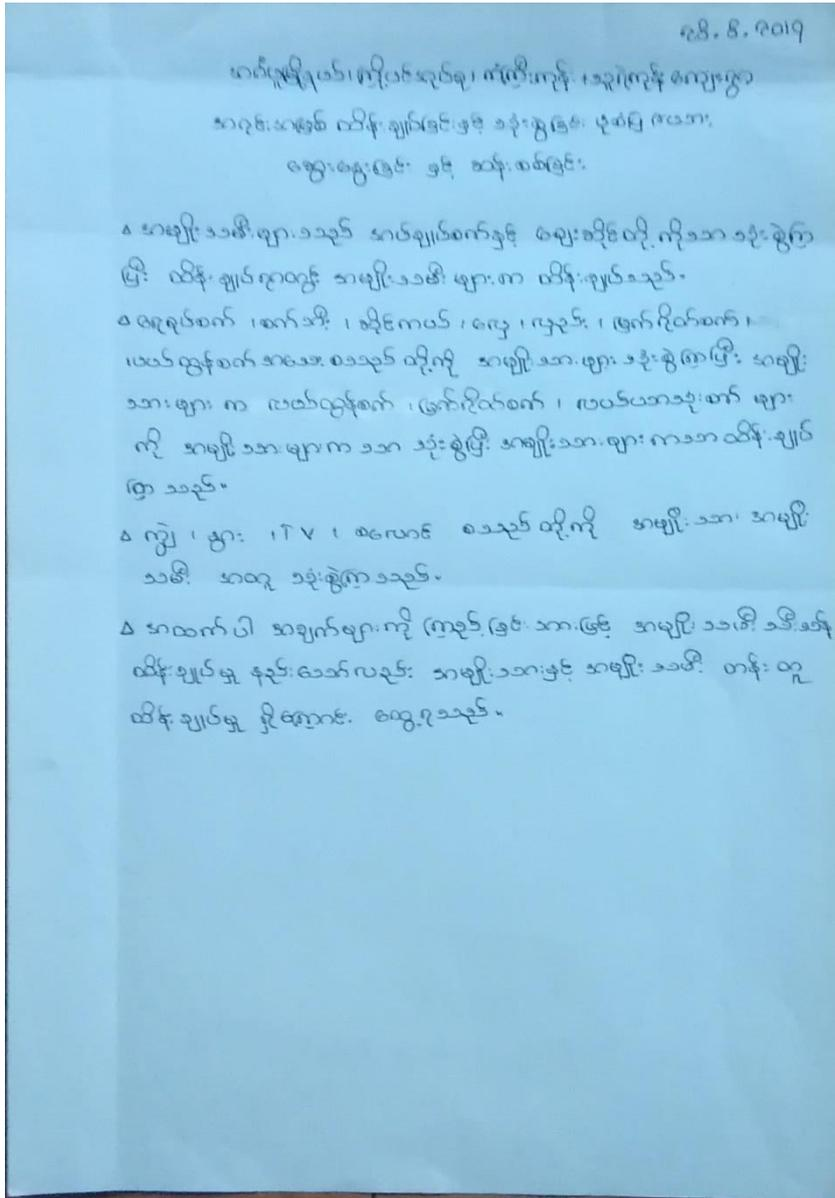 ၂၆. ၈. ၂၀၁၇
အင်္ဂပူမြို့နယ်၊ ကြို့ပင်အုပ်စု၊ ကံကြီးကုန်း ၊ သူရဲကုန်း ကျေးရွာ
အရင်းအမြစ် ထိန်းချုပ်ခြင်းနှင့် သုံးစွဲခြင်း ပုံစံပြ ဇယား
ဆွေးနွေးခြင်း နှင့် ဆန်းစစ်ခြင်း
∆ အမျိုးသမီးများသည် အပ်ချုပ်စက်နှင့် ဈေးဆိုင်တို့ ကိုသာ သုံးစွဲကြ
ပြီး ထိန်းချုပ်ရာတွင် အမျိုးသမီးများက ထိန်းချုပ်သည်။
∆ ရေစုပ်စက် ၊ စက်ဘီး ၊ ဆိုင်ကယ် ၊ လှေ ၊ လှည်း ၊ မြက်ရိတ်စက် ၊
လယ်ထွန်စက် အသေး စသည်တို့ကို အမျိုးသားများ သုံးစွဲကြပြီး အမျိုး
သားများ က လယ်ထွန်စက် ၊ မြက်ရိတ်စက် ၊ လယ်ယာသုံးစက် များ
ကို အမျိုးသားများက သာ သုံးစွဲပြီး အမျိုးသားများကသာ ထိန်းချုပ်
ကြ သည်။
∆ ကျွဲ ၊ နွား ၊ TV ၊ စလောင်း စသည်တို့ကို အမျိုးသား အမျိုး
သမီး အတူ သုံးစွဲကြသည်။
∆ အထက်ပါ အချက်များကို ကြည့်ခြင်း အားဖြင့် အမျိုးသမီး သီးသန့်
ထိန်းချုပ်မှု နည်းသော်လည်း အမျိုးသားနှင့် အမျိုးသမီး တန်းတူ
ထိန်းချုပ်မှု ရှိကြောင်း တွေ့ရသည်။